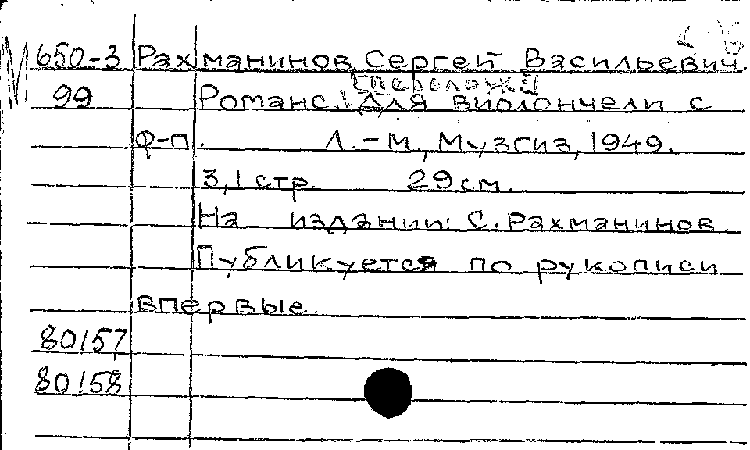 650-3 Рахманинов Сергей Васильевич.
99 Романс. Для виолончели с
ф-п. Л.-М., Музгиз, 1949.
3,1 стр. 29 см.
На издании: С. Рахманинов
Публикуется по рукописи
впервые.
80157
80158